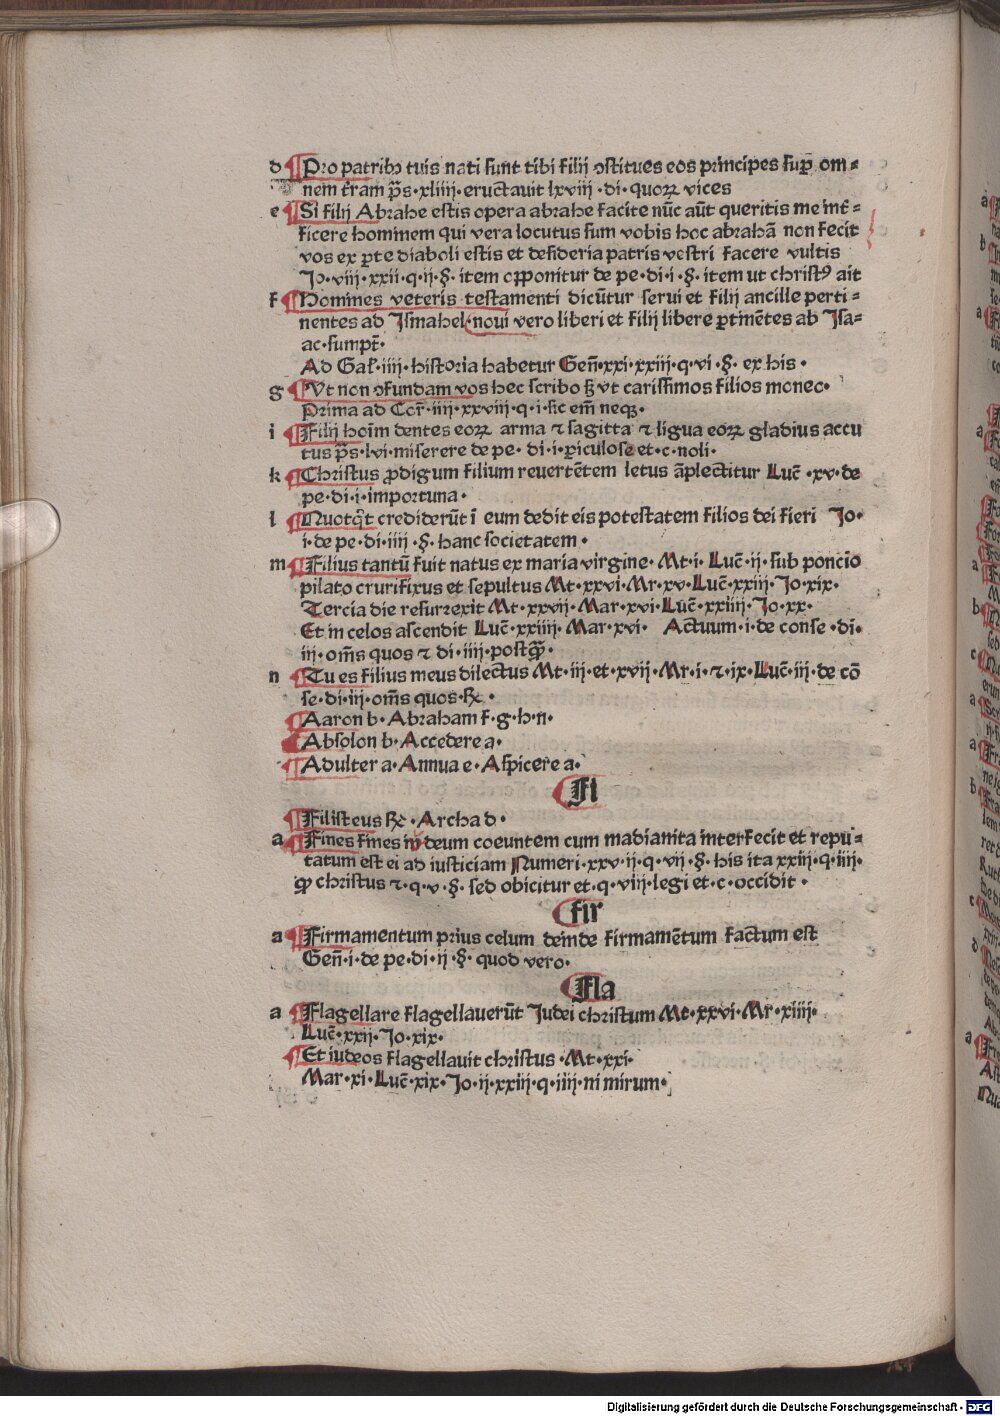 d Pro patribꝫ tuis nati sunt tibi filij ꝯstitues eos principes suꝑ om=
nem t̄ram p̄s·xliiij·eructauit lxviij·di·quoꝝ vices
e Si filij Abrahe estis opera abrahe facite nūc aūt queritis me int̄=
ficere hominem qui vera locutus sum vobis hoc abrahā non fecit
vos ex ꝑte diaboli estis et desideria patris vestri facere vultis
Jo·viij·xxij·q·ij·§·item opponitur de pe·di·i·§·item ut christꝰ ait
f Homines veteris testamenti dicūtur serui et filij ancille perti=
nentes ad Jsmahel·noui vero liberi et filij libere ꝑtinētes ab Jsa=
ac·sumpt̄·
Ad Gal̄·iiij·historia habetur Gen̄·xxi·xxiij·q·vi·§·ex his·
g Vt non ꝯfundam vos hec scribo ꝫ vt carissimos filios moneo·
Prima ad Cor̄·iiij·xxviij·q·i·sic em̄ neqꝫ·
i Filij hoīm dentes eoꝝ arma ⁊ sagitta ⁊ ligua eoꝝ gladius accu
tus p̄s·lvi·miserere de pe·di·i·ꝑiculose et·c·noli·
k Christus ꝓdigum filium reuertētem letus āplectitur Luc̄·xv·de
pe·di·i·importuna·
l Quotq̄t crediderūt ī eum dedit eis potestatem filios dei fieri Jo·
i·de pe·di·iiij·§·hanc societatem·
m Filius tantū fuit natus ex maria virgine·Mt·i·Luc̄·ij·sub poncio
pilato crurifixus et sepultus Mt·xxvi·Mr·xv·Luc̄·xxiij·Jo·xix·
Tercia die resurrexit Mt·xxvij·Mar·xvi·Luc̄·xxiiij·Jo·xx·
Et in celos ascendit Luc̄·xxiiij·Mar·xvi· Actuum·i·de conse·di·
iij·om̄s quos ⁊ di·iiij·postꝙ̄·
n Tu es filius meus dilectus Mt·iij·et·xvij·Mr·i·⁊·ix·Luc̄·iij·de cō
se·di·iij·om̄s quos·℞·
Aaron b·Abraham f·g·h·n·
Absolon b·Accedere a·
Adulter a·Annua e·Aspicere a·
Fi
Filisteus ℞·Archa d·
a Fines fines in deum coeuntem cum madianita interfecit et repu=
tatum est ei ad iusticiam Numeri·xxv·ij·q·vij·§·his ita xxiij·q·iiij·
ꝙ christus ⁊·q·v·§·sed obicitur et·q·viij·legi et·c·occidit·
Fir
a Firmamentum prius celum deinde firmamētum factum est
Gen̄·i·de pe·di·ij·§·quod vero·
Fla
a Flagellare flagellauerūt Judei christum Mt·xxvi·Mr·xiiij·
Luc̄·xxij·Jo·xix·
Et iudeos flagellauit christus·Mt·xxi·
Mar·xi·Luc̄·xix·Jo·ij·xxiij·q·iiij·ni mirum·
Digitalisierung gefördert durch die Deutsche Forschungsgemeinschaft - DFG